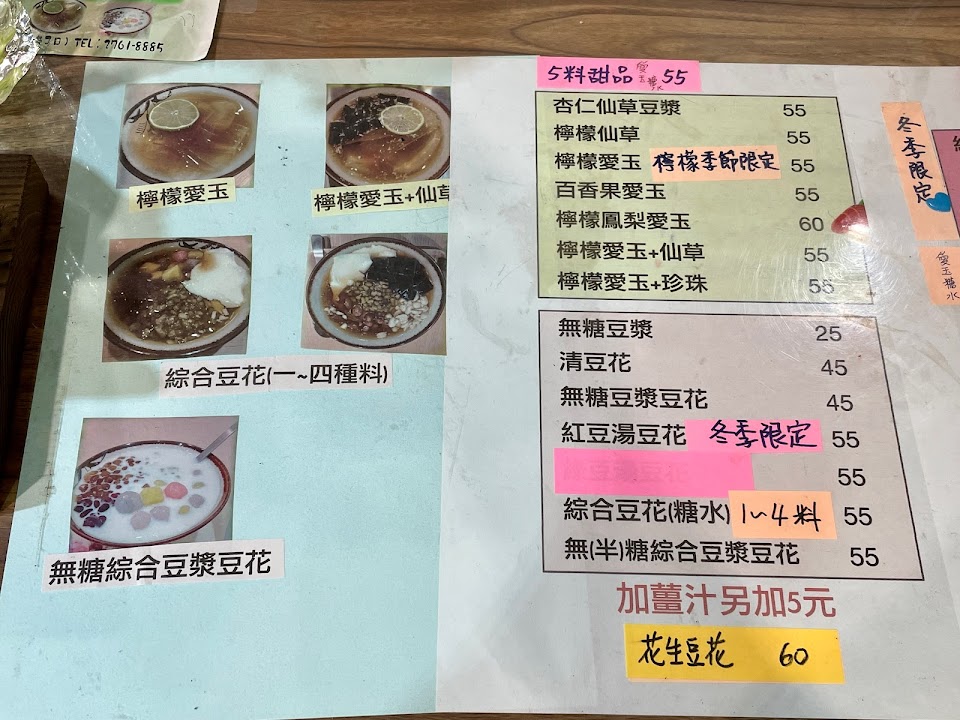 TEL:2761-8885
檸檬愛玉
檸檬愛玉+仙草
綜合豆花(一~四種料)
無糖綜合豆漿豆花
5料甜品 愛玉糖水 55
杏仁仙草豆漿 55
檸檬仙草 55
檸檬愛玉 檸檬季節限定 55
百香果愛玉 55
檸檬鳳梨愛玉 60
檸檬愛玉+仙草 55
檸檬愛玉+珍珠 55
無糖豆漿 25
清豆花 45
無糖豆漿豆花 45
紅豆湯豆花 冬季限定 55
55
綜合豆花(糖水) 1~4料 55
無(半)糖綜合豆漿豆花 55
加薑汁另加5元
花生豆花 60
冬季限定
愛玉糖水